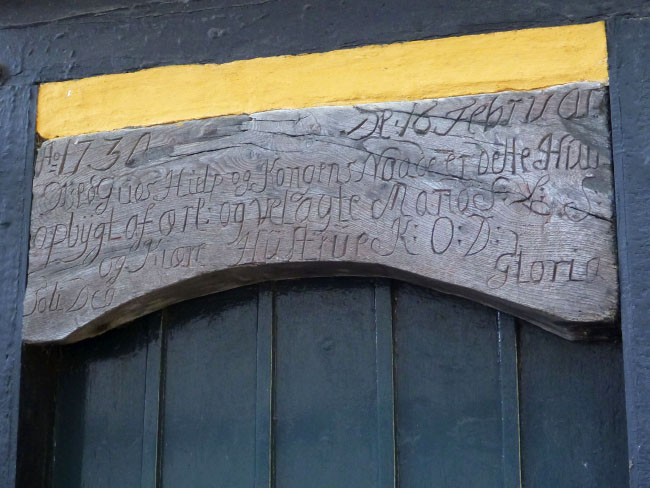 Ao 1730 De. 16 Februari
Guds Hielp og Kongens Naade er dette Huus
opbÿgt af og velagte Mand S: L: S:
og Hustrue K: O: D:
Gloria
Soli Deo